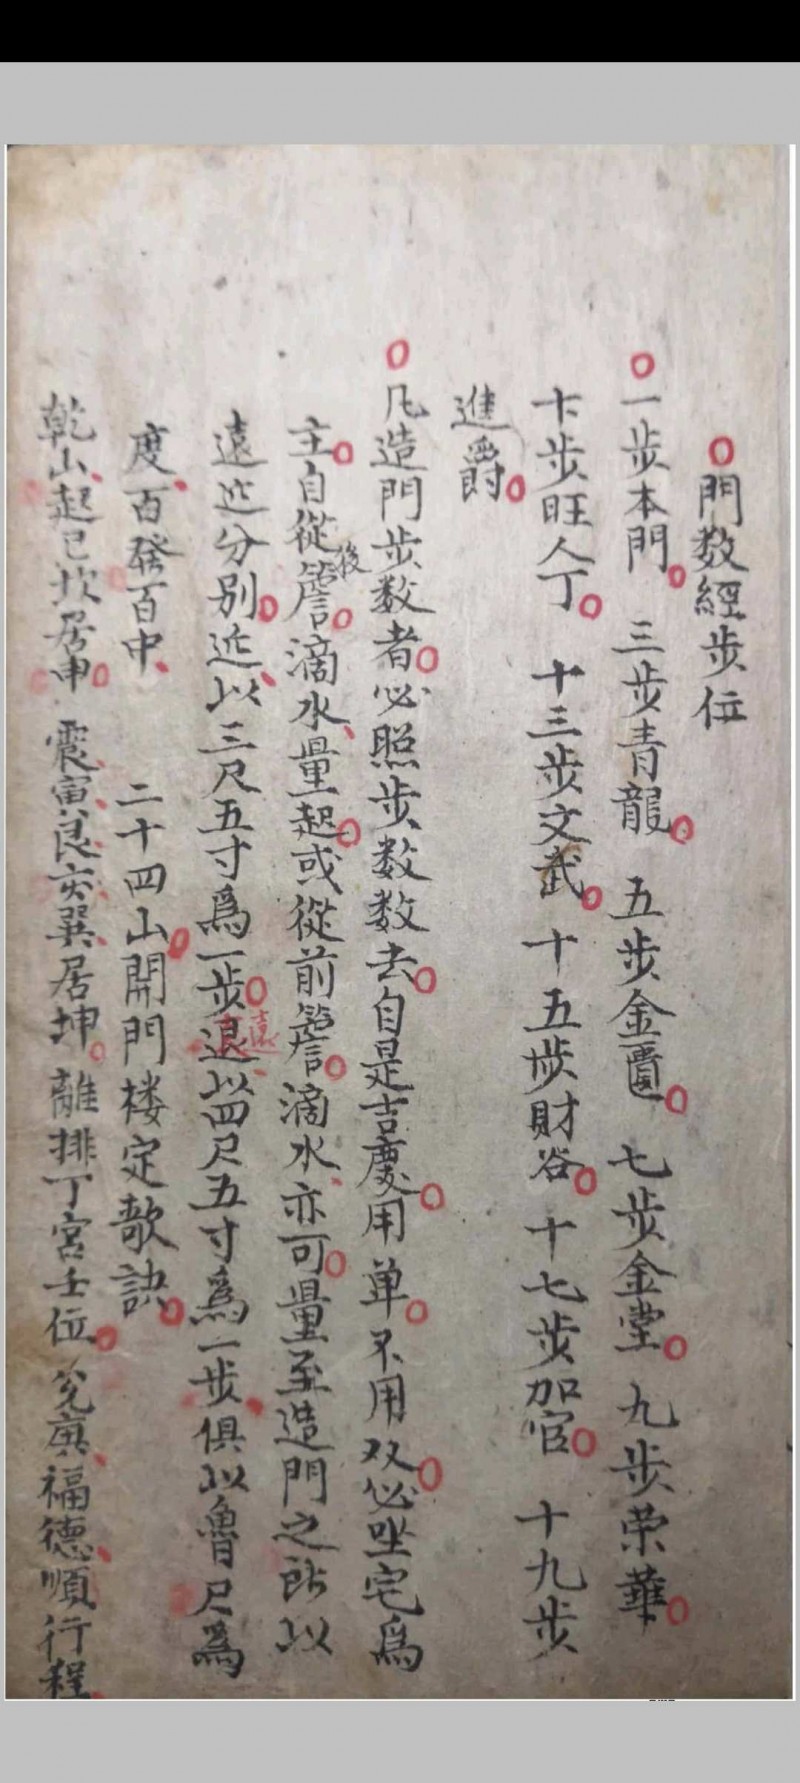 門数經步位
一步本門 三步青龍 五步金匱 七步金堂 九步荣華
十步旺人丁 十三步文武 十五步財谷 十七步加官 十九步
進爵
凡造門步数者必照步数数去自是吉慶用单不用双必坐宅爲
主自從後簷滴水量起或從前簷滴水亦可量至造門之所以
遠近分别近以三尺五寸爲一步遠退以四尺五寸爲一步俱以魯尺爲
度百發百中 二十四山開門楼定歌訣
乾山起巳坎居申 震寅艮亥巽居坤 離排丁宮壬位 兌寅福德順行程